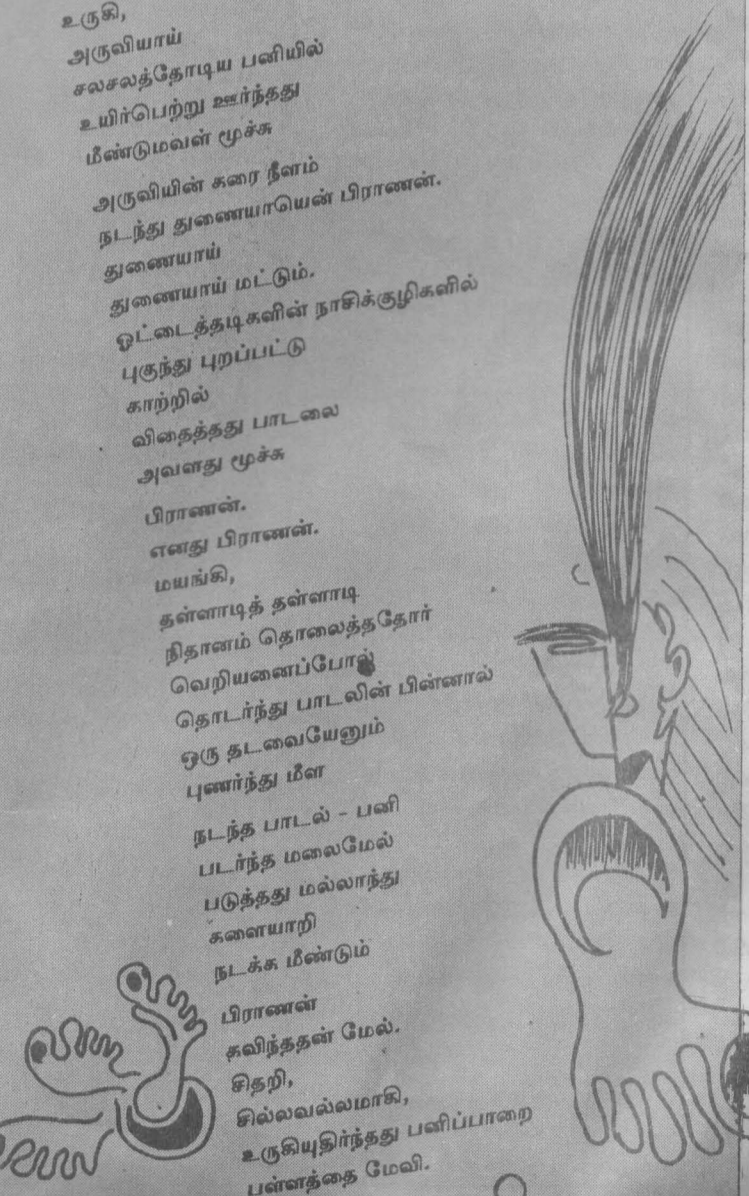 உருகி,
அருவியாய்
சலசலத்தோடிய பனியில்
உயிர்பெற்று ஊர்ந்தது
மீண்டுமவள் மூச்சு
அருவியின் கரை நீளம்
நடந்து துணையாயென் பிராணன்.
துணையாய்
துணையாய் மட்டும்.
ஓட்டைத்தடிகளின் நாசிக்குழிகளில்
புகுந்து புறப்பட்டு
காற்றில்
விதைத்தது பாடலை
அவளது மூச்சு
பிராணன்.
எனது பிராணன்.
மயங்கி,
தள்ளாடித் தள்ளாடி
நிதானம் தொலைத்ததோர்
வெறியனைப்போல்
தொடர்ந்து பாடலின் பின்னால்
ஒரு தடவையேனும்
புணர்ந்து மீள
நடந்த பாடல் - பனி
படர்ந்த மலைமேல்
படுத்தது மல்லாந்து
களையாறி
நடக்க மீண்டும்
பிராணன்
கவிந்ததன் மேல்.
சிதறி,
சில்லவல்லமாகி,
உருகியுதிர்ந்தது பனிப்பாறை
பள்ளத்தை மேவி.